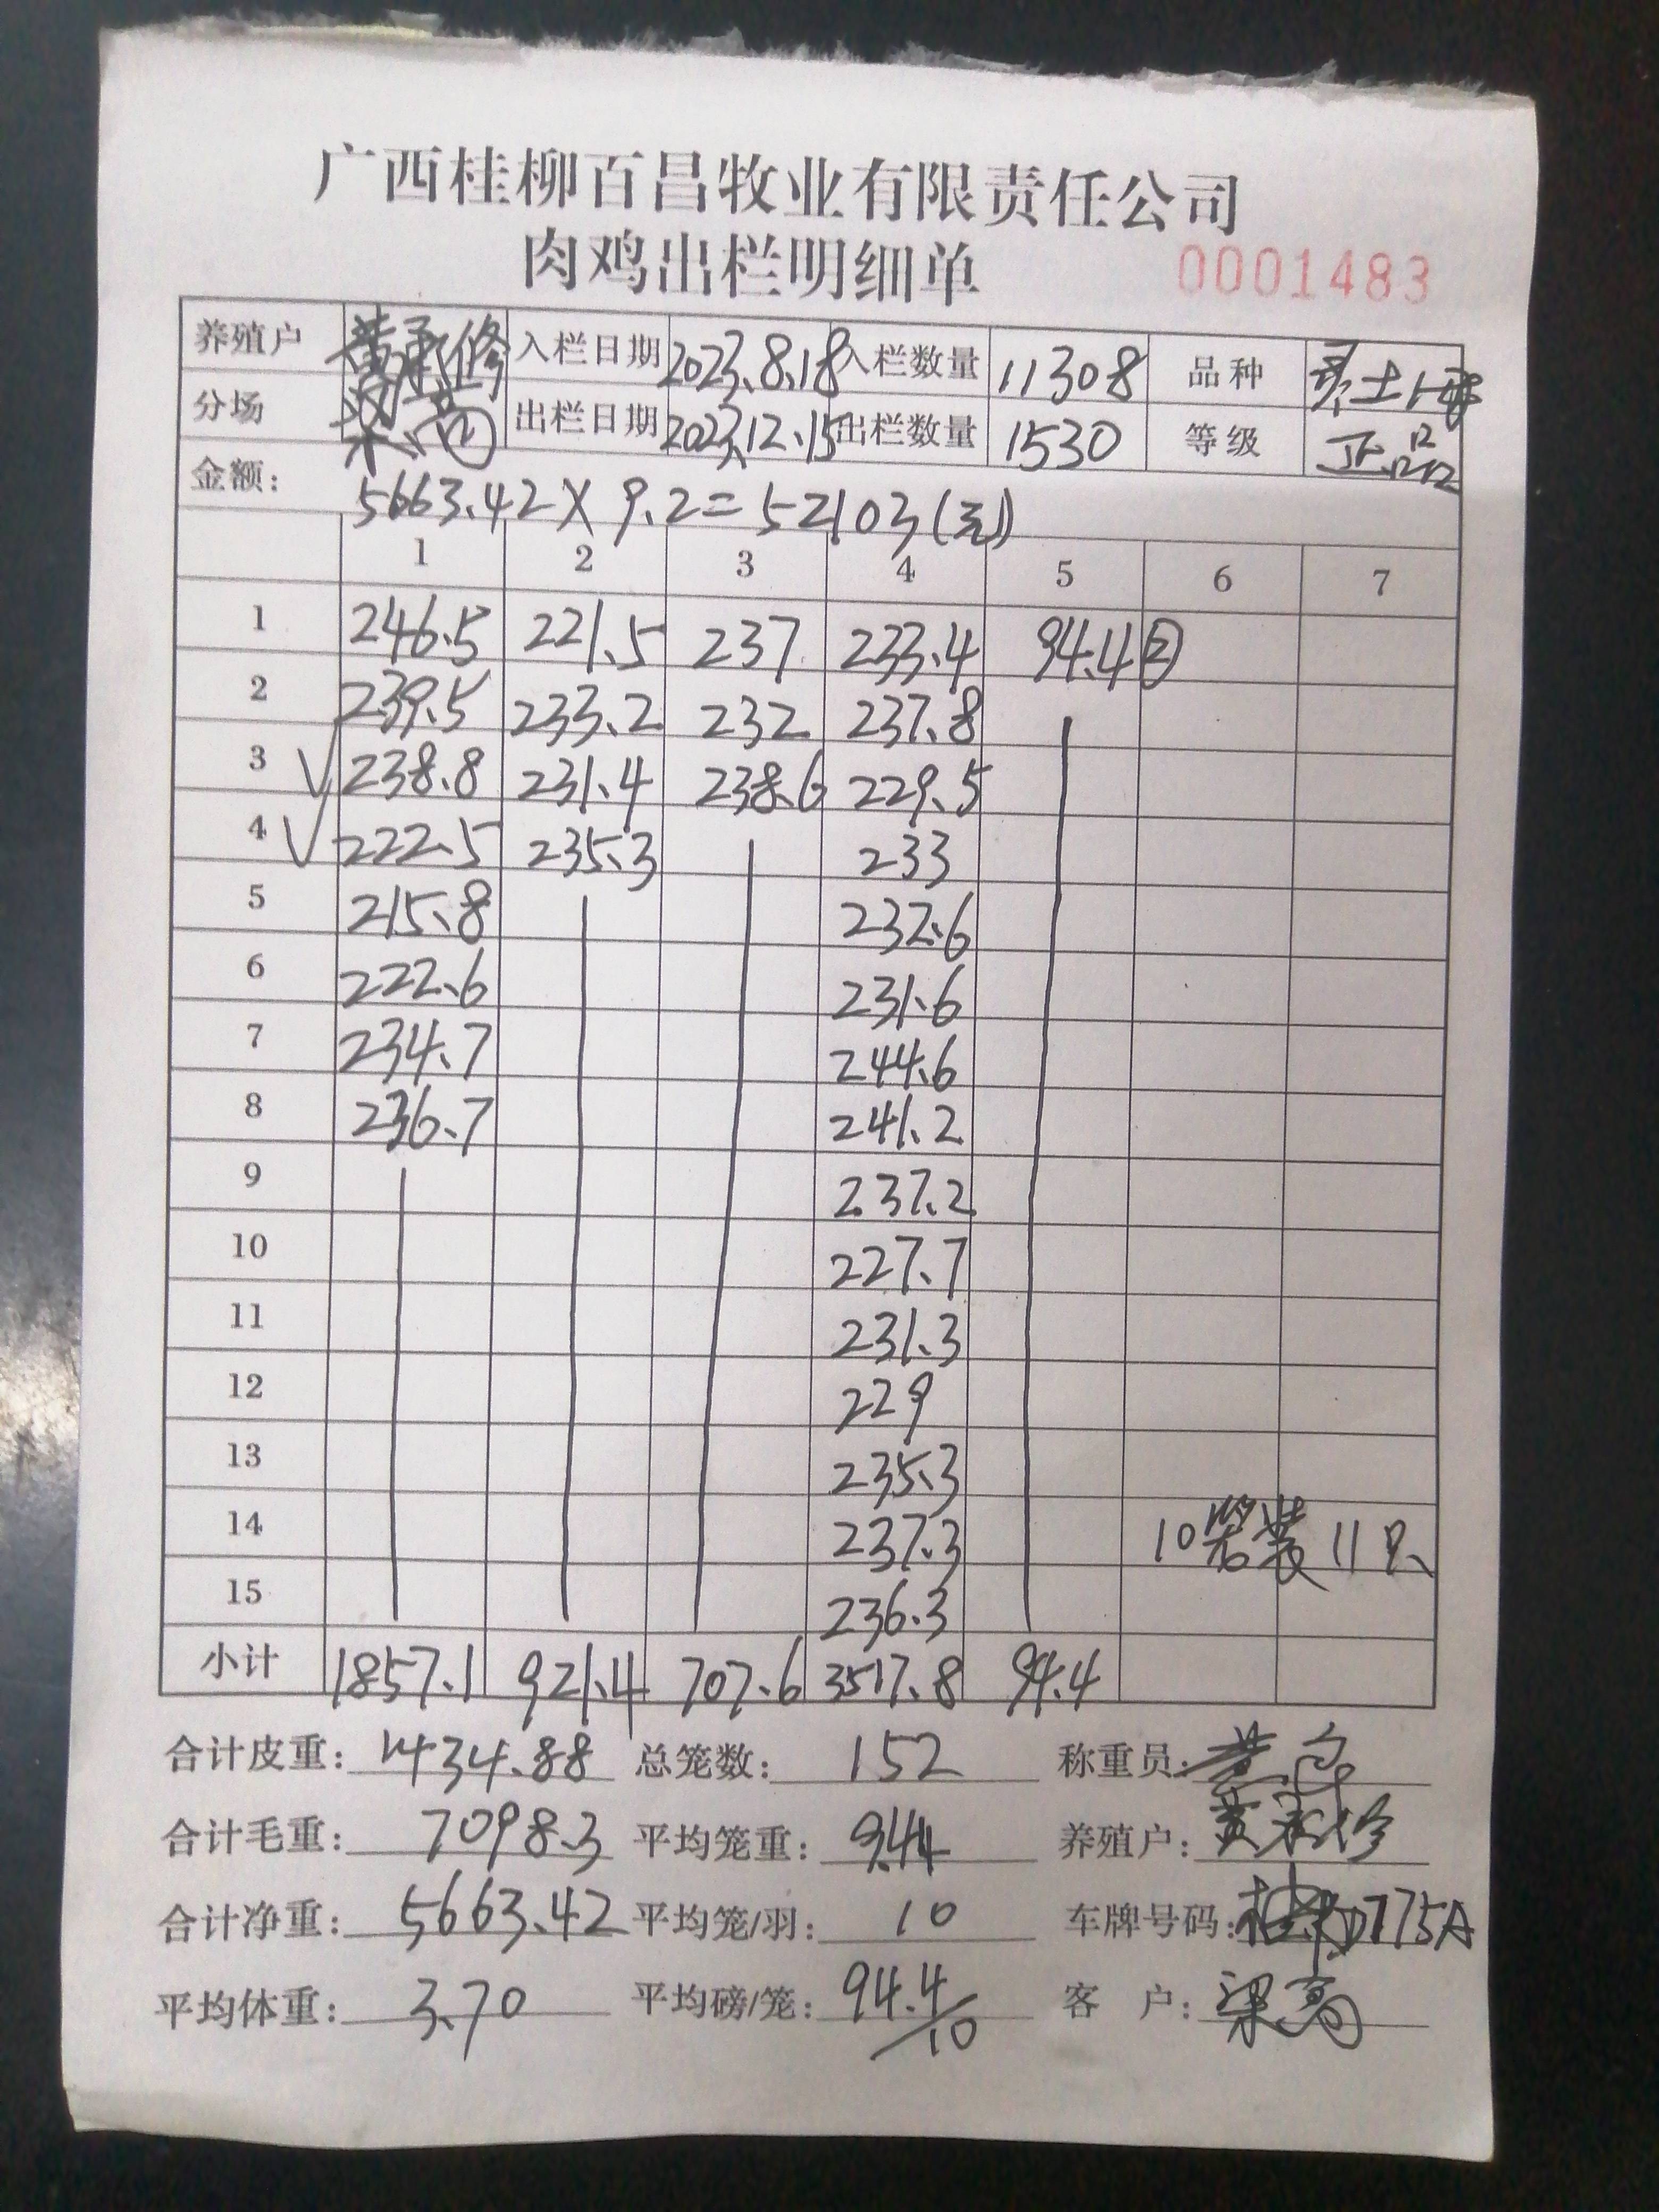 广西桂柳百昌牧业有限责任公司
肉鸡出栏明细单 0001483
养殖户 黄承修 入栏日期 2023.8.18 入栏数量 11308 品种
分场 出栏日期 2023.12.15 出栏数量 1530 等级 正品
金额: 5663.42×9.2=52103(元)
1 2 3 4 5 6 7
1 246.5 221.5 237 233.4 94.4②
2 239.5 233.2 232 237.8
3 238.8 231.4 238.6 229.5
4 222.5 235.3 233
5 215.8 232.6
6 222.6 231.6
7 234.7 244.6
8 236.7 241.2
9 237.2
10 227.7
11 231.3
12 229
13 235.3
14 237.3 10笼装11只
15 236.3
小计 1857.1 921.4 707.6 3517.8 94.4
合计皮重: 1434.88 总笼数: 152 称重员:
合计毛重: 7098.3 平均笼重: 9.44 养殖户: 黄承修
合计净重: 5663.42 平均笼/羽: 10 车牌号码:
平均体重: 3.70 平均磅/笼: 94.4/10 客 户: